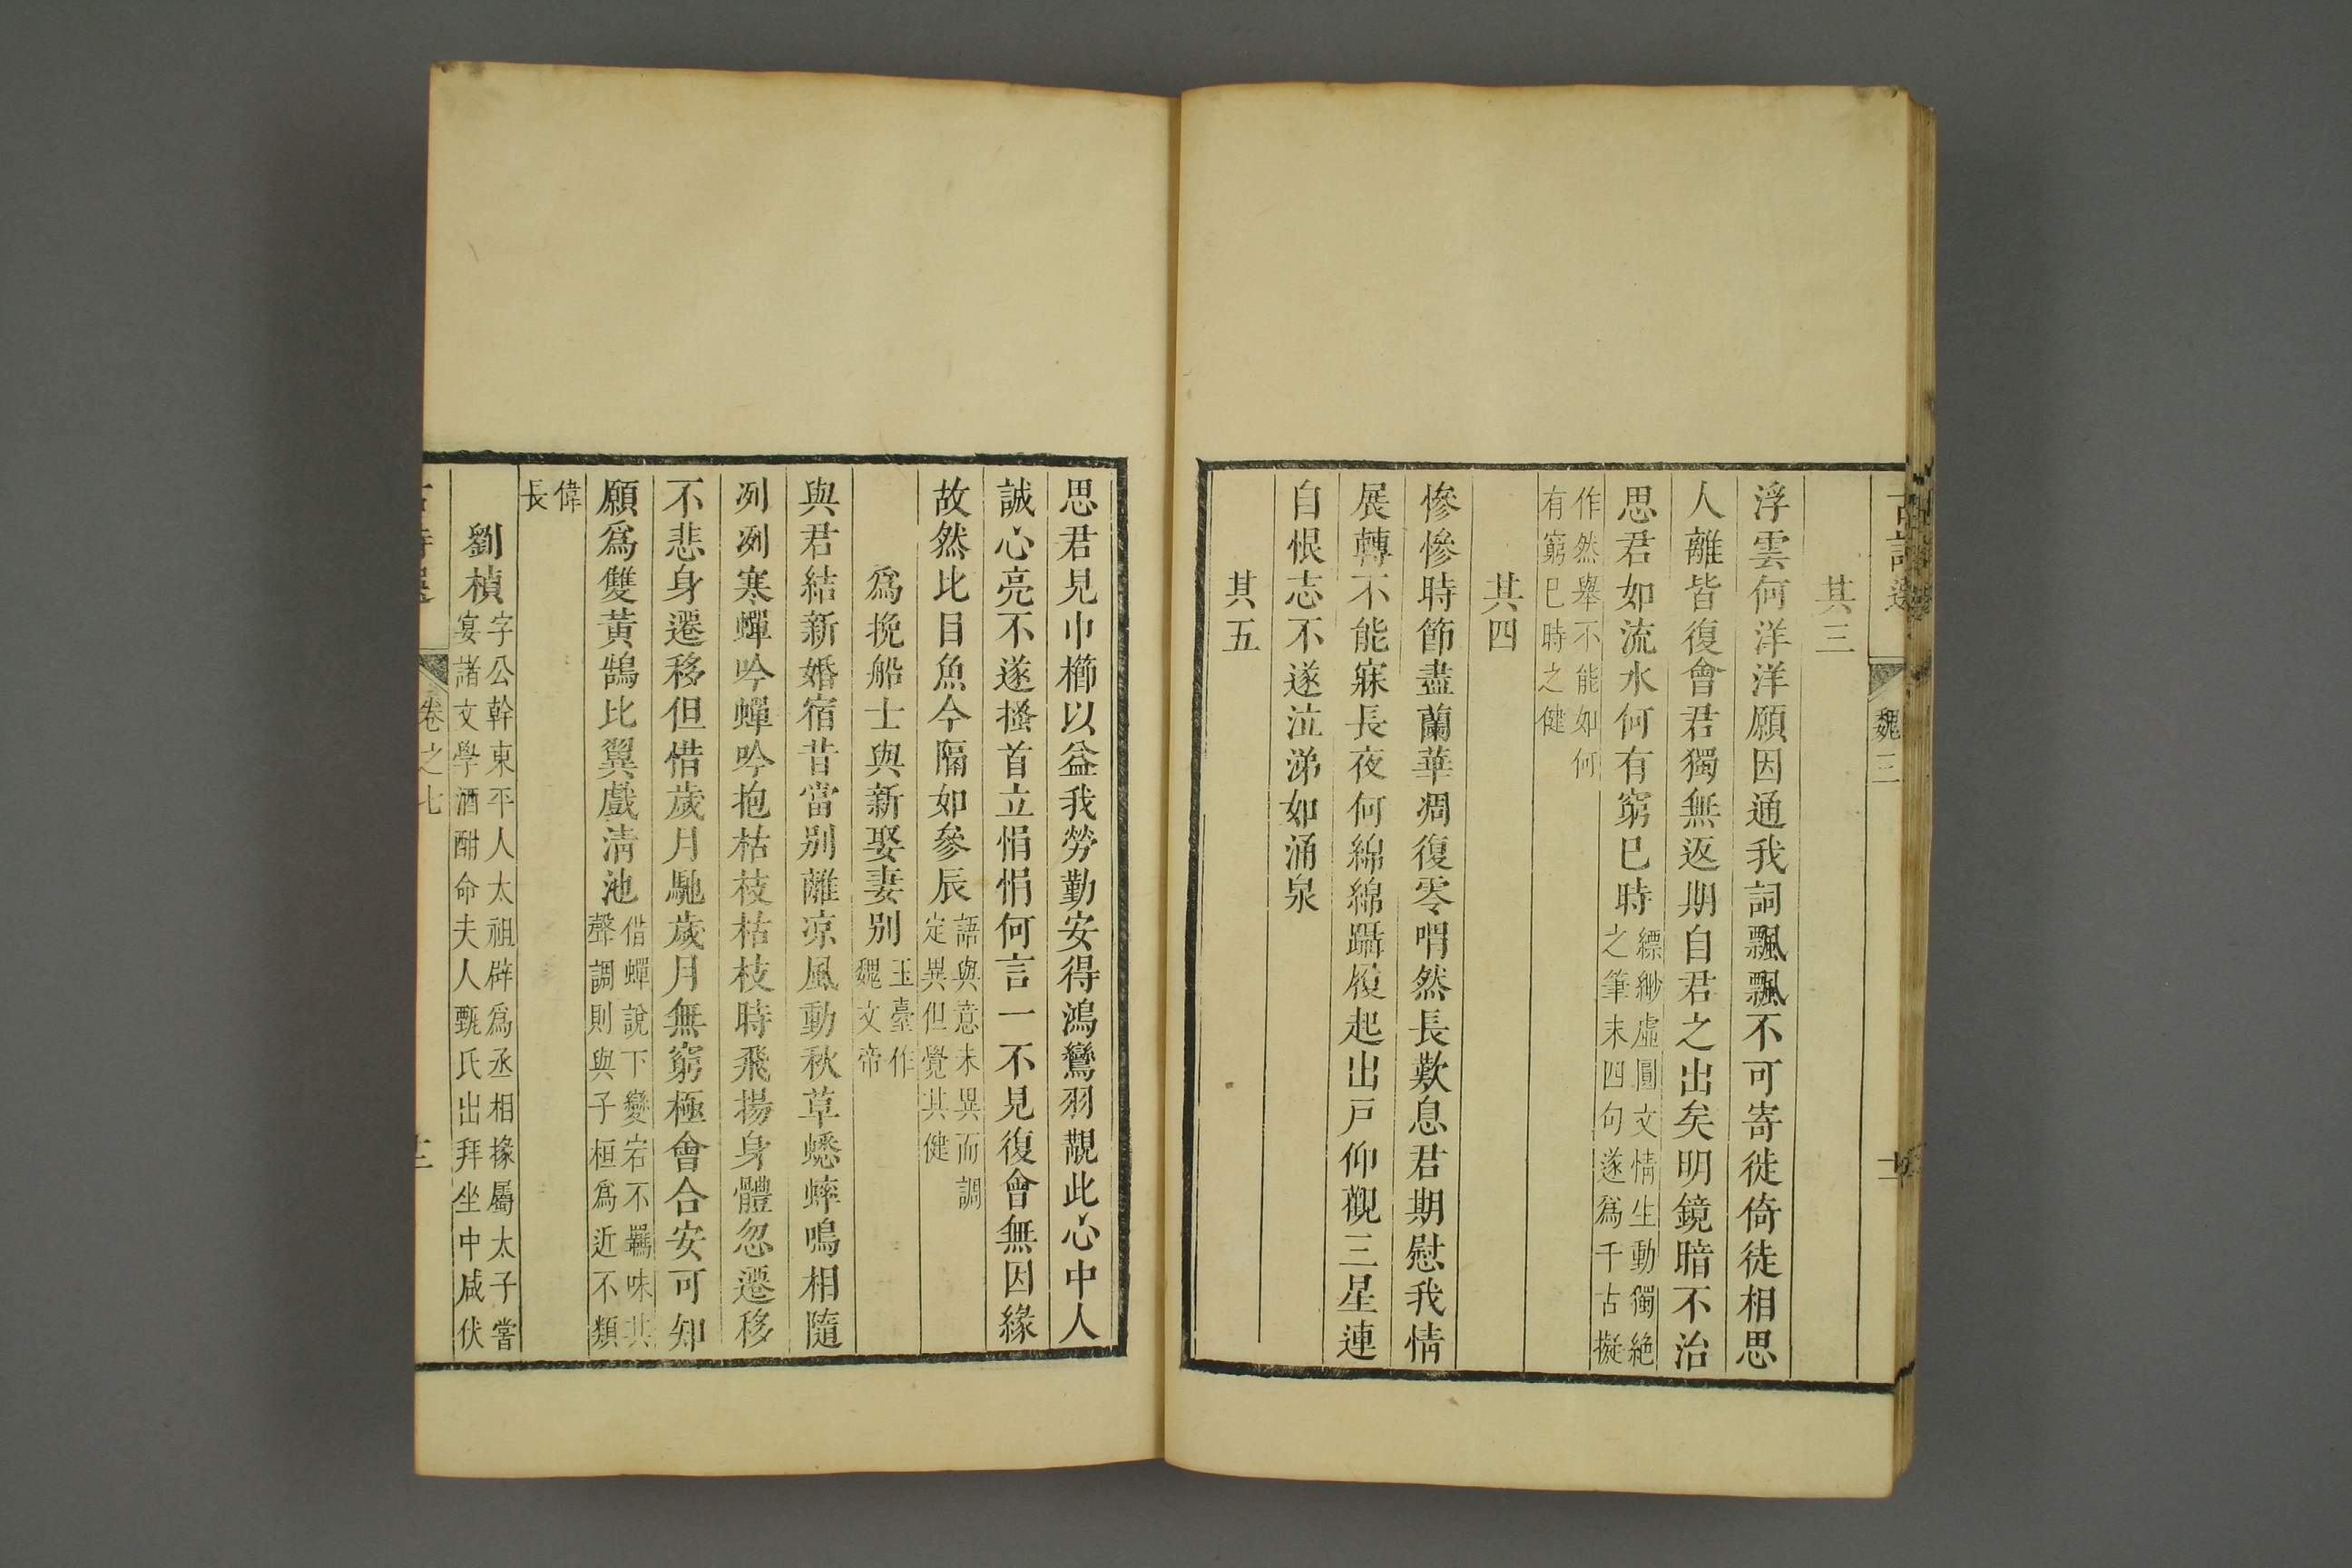 魏三
其三
浮雲何洋洋願因通我詞飄飄不可寄徙倚徒相思
人離皆復會君獨無返期自君之出矣明鏡暗不治
思君如流水何有窮巳時
縹緲虛圓文情生動獨絶
之筆末四句遂爲千古擬
作然舉不能如何
有窮巳時之健
其四
慘慘時節盡蘭華凋復零喟然長歎息君期慰我情
展轉不能寐長夜何綿綿躡履起出戸仰觀三星連
自恨志不遂泣涕如涌泉
其五
思君見巾櫛以益我勞勤安得鴻鸞羽覯此心中人
誠心亮不遂搔首立悁悁何言一不見復會無因緣
故然比目魚今隔如參辰
語與意未異而調
定異但覺其健
爲挽船士與新娶妻别
玉臺作
魏文帝
與君結新婚宿昔當别離凉風動秋草蟋蟀鳴相隨
冽冽寒蟬吟蟬吟抱枯枝枯枝時飛揚身體忽遷移
不悲身遷移但惜歲月馳歲月無窮極會合安可知
願爲雙黄鵠比翼戲清池
借蟬說下變宕不羈味其
聲調則與子桓爲近不類
偉
長
劉楨
字公幹東平人太祖辟爲丞相掾屬太子嘗
宴諸文學酒酣命夫人甄氏出拜坐中咸伏
卷之七